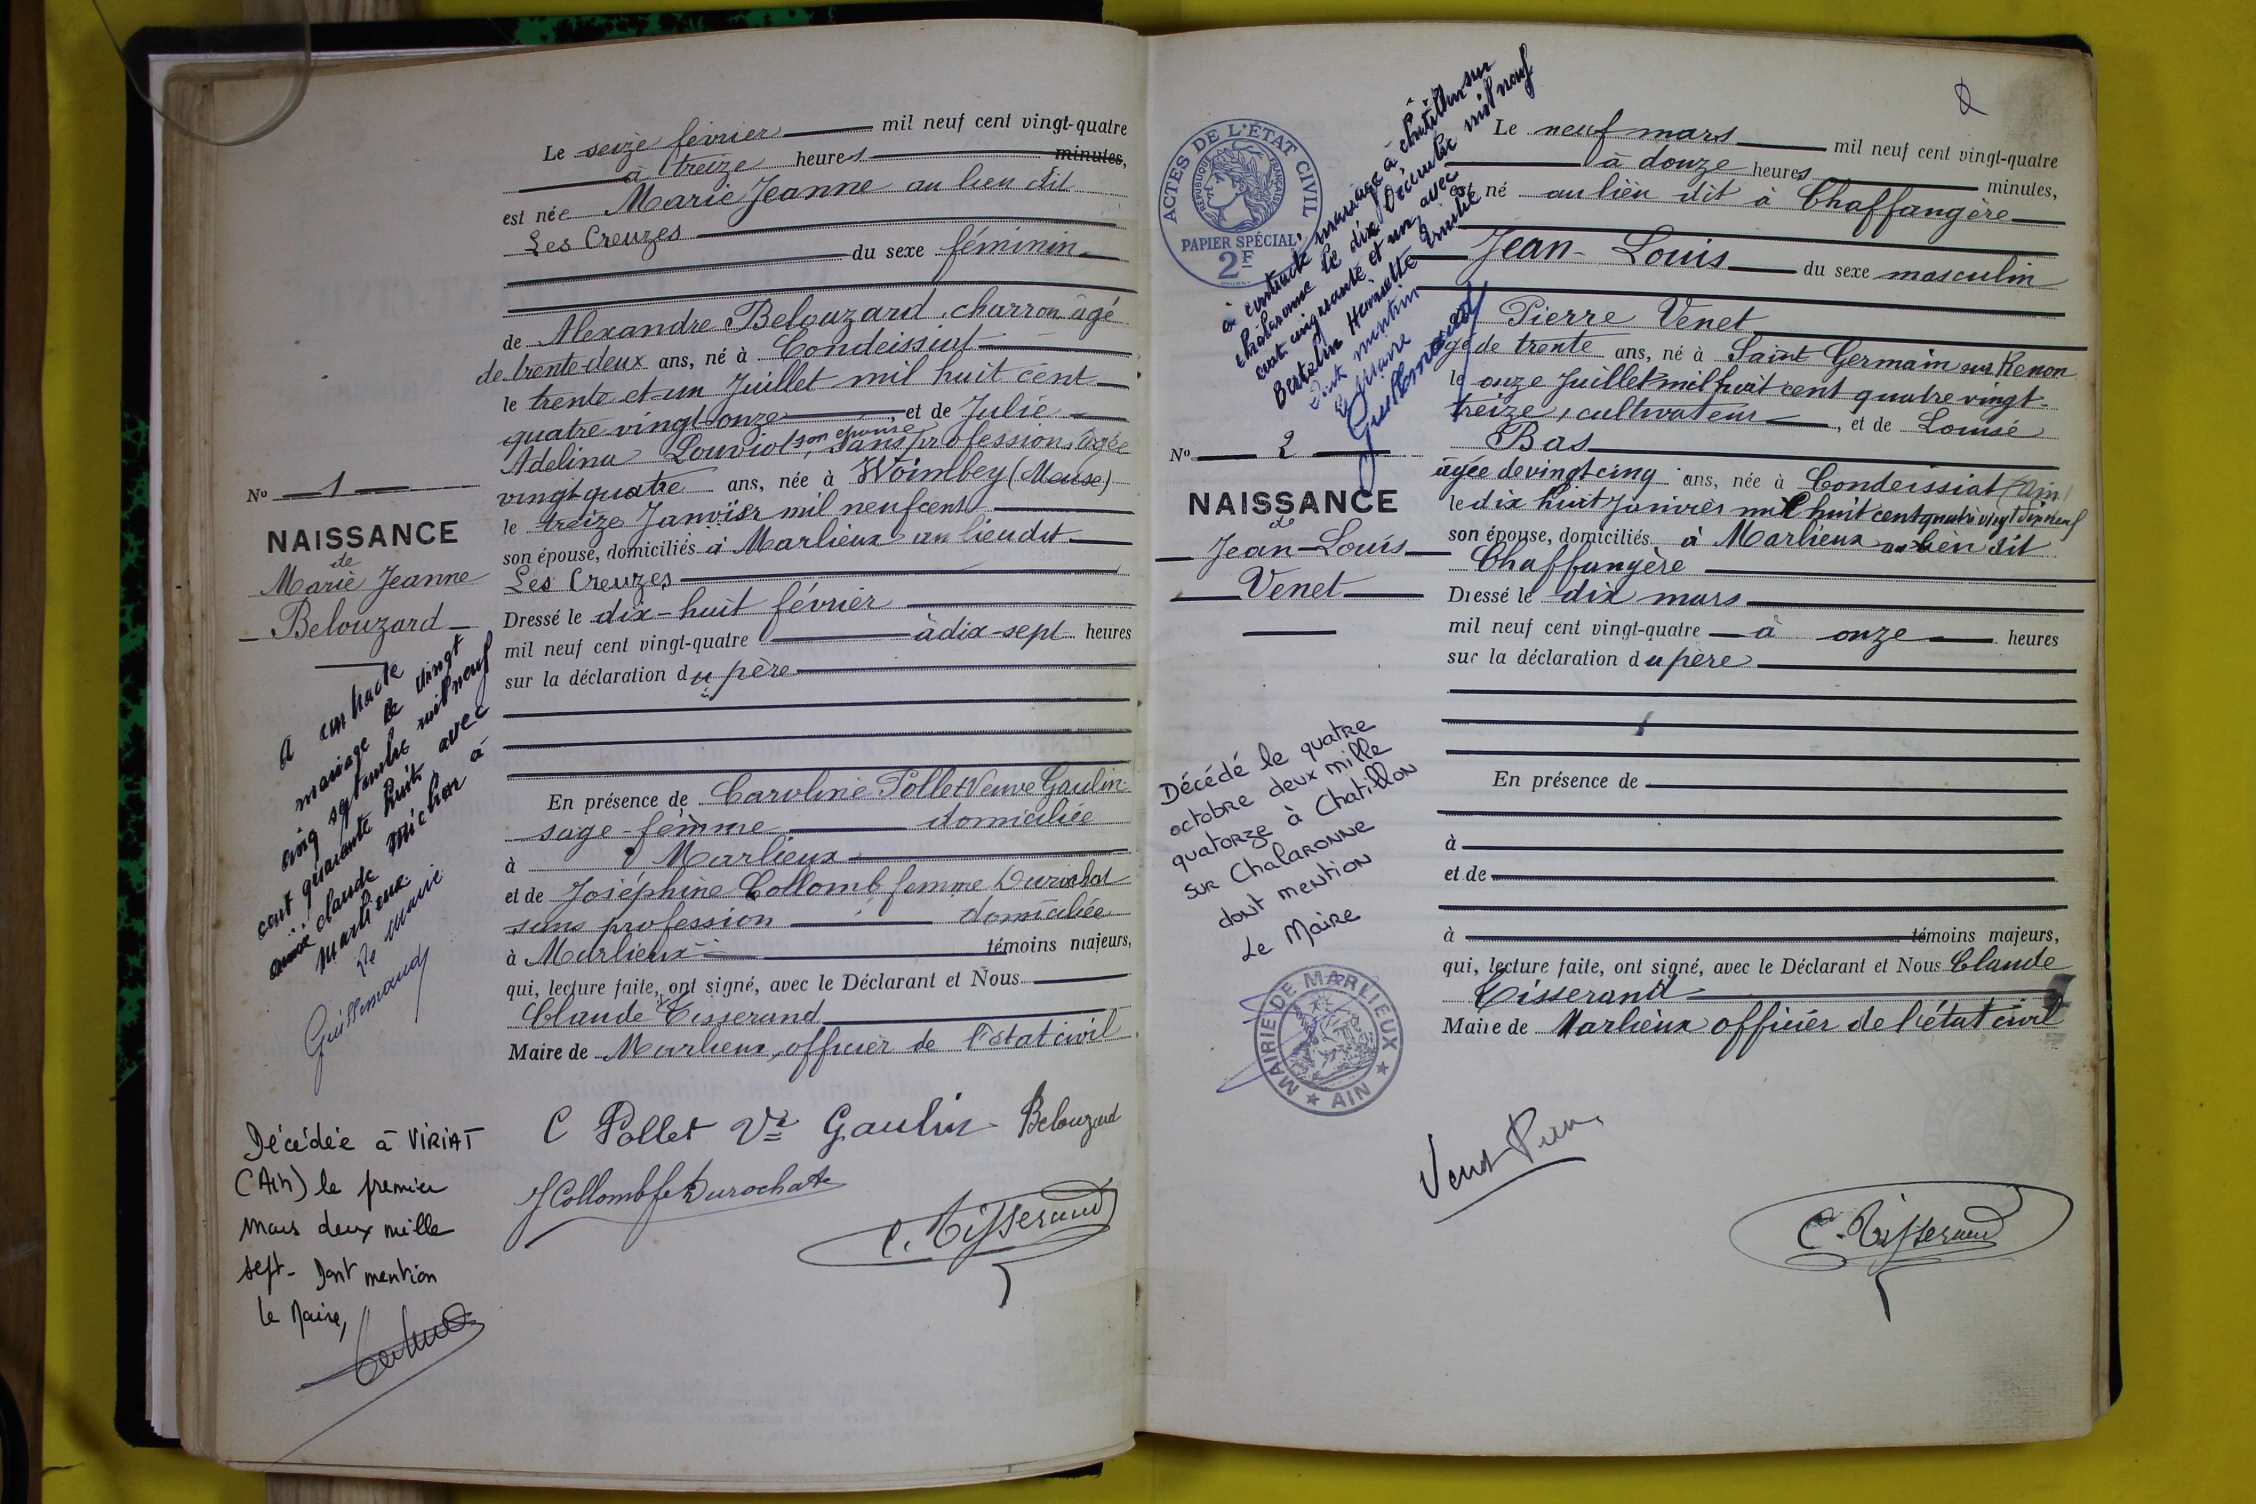 Le seize février mil neuf cent vingt-quatre
à treize heures minutes,
est née Marie Jeanne au lieu dit
Les Creuzes
du sexe féminin
de Alexandre Belouzard, charron âgé
de trente-deux ans, né à Condeissiat
le trente et un Juillet mil huit cent
quatre vingt onze, et de Julie
Adelina Louviot, son épouse, sans profession, âgée
vingt quatre ans, née à Woimbey (Meuse)
le treize Janvier mil neuf cent
son épouse, domiciliés à Marlieux au lieu dit
Les Creuzes
Dressé le dix-huit février
mil neuf cent vingt-quatre à dix-sept heures
sur la déclaration du père
En présence de Caroline Pollet Veuve Gaulin
sage-femme domiciliée
à Marlieux
et de Joséphine Collomb femme Durochat
sans profession domiciliée
à Marlieux témoins majeurs,
qui, lecture faite, ont signé, avec le Déclarant et Nous
Claude Tisserand
Maire de Marlieux, officier de l'état civil
C Pollet Vve Gaulin Belouzard
J Collomb fe Durochat
C. Tisserand
No 1
NAISSANCE
de
Marie Jeanne
Belouzard
A contracté
mariage le vingt
cinq septembre mil neuf
cent quarante huit avec
Claude Michon à
Marlieux
Le Maire
Guillemaud
Décédée à VIRIAT
(Ain) le premier
mars deux mille
sept - Dont mention
le Maire,
ACTES DE L'ÉTAT CIVIL
RÉPUBLIQUE FRANÇAISE
PAPIER SPÉCIAL
2F
a contracté mariage à Châtillon sur
Chalaronne le dix Décembre mil neuf
cent cinquante et un avec
Bertelin Henriette Emilie
Dont mention
Guillemaud
No 2
NAISSANCE
de
Jean-Louis
Venet
Décédé le quatre
octobre deux mille
quatorze à Chatillon
sur Chalaronne
dont mention
Le Maire
MAIRIE DE MARLIEUX
AIN
2
Le neuf mars mil neuf cent vingt-quatre
à douze heures minutes,
est né au lieu dit à Chaffangère
Jean-Louis du sexe masculin
Pierre Venet
âgé de trente ans, né à Saint Germain sur Renon
le onze Juillet mil huit cent quatre vingt-
treize, cultivateur, et de Louise
Bas
âgée de vingt cinq ans, née à Condeissiat (Ain)
le dix huit Janvier mil huit cent quatre vingt dix neuf
son épouse, domiciliés à Marlieux au lieu dit
Chaffangère
Dressé le dix mars
mil neuf cent vingt-quatre à onze heures
sur la déclaration du père
En présence de
à
et de
à témoins majeurs,
qui, lecture faite, ont signé, avec le Déclarant et Nous Claude
Tisserand
Maire de Marlieux officier de l'état civil
Venet Pierre
C. Tisserand